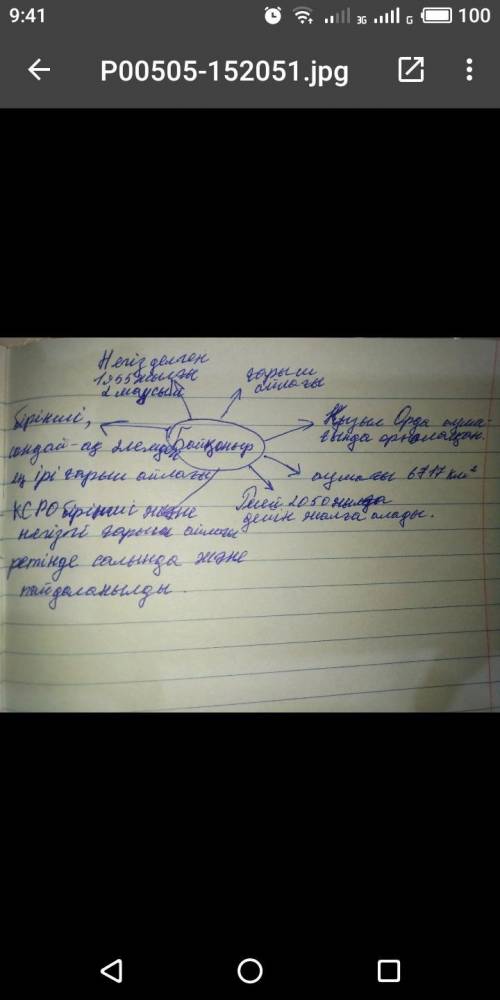 9:41
3G
G
100
P00505-152051.jpg
Негізделген
1955 жылғы
2 маусым
ғарыш
айлағы
Байқоңыр
Қызыл Орда аума-
ғында орналасқан.
аумағы 6717 км²
2050 жылға
дейін жалға алады.
бірінші,
сондай-ақ әлемдегі
ең ірі ғарыш айлағы
КСРО бірінші және
негізгі ғарыш айлағы
ретінде салында және
пайдаланылды.